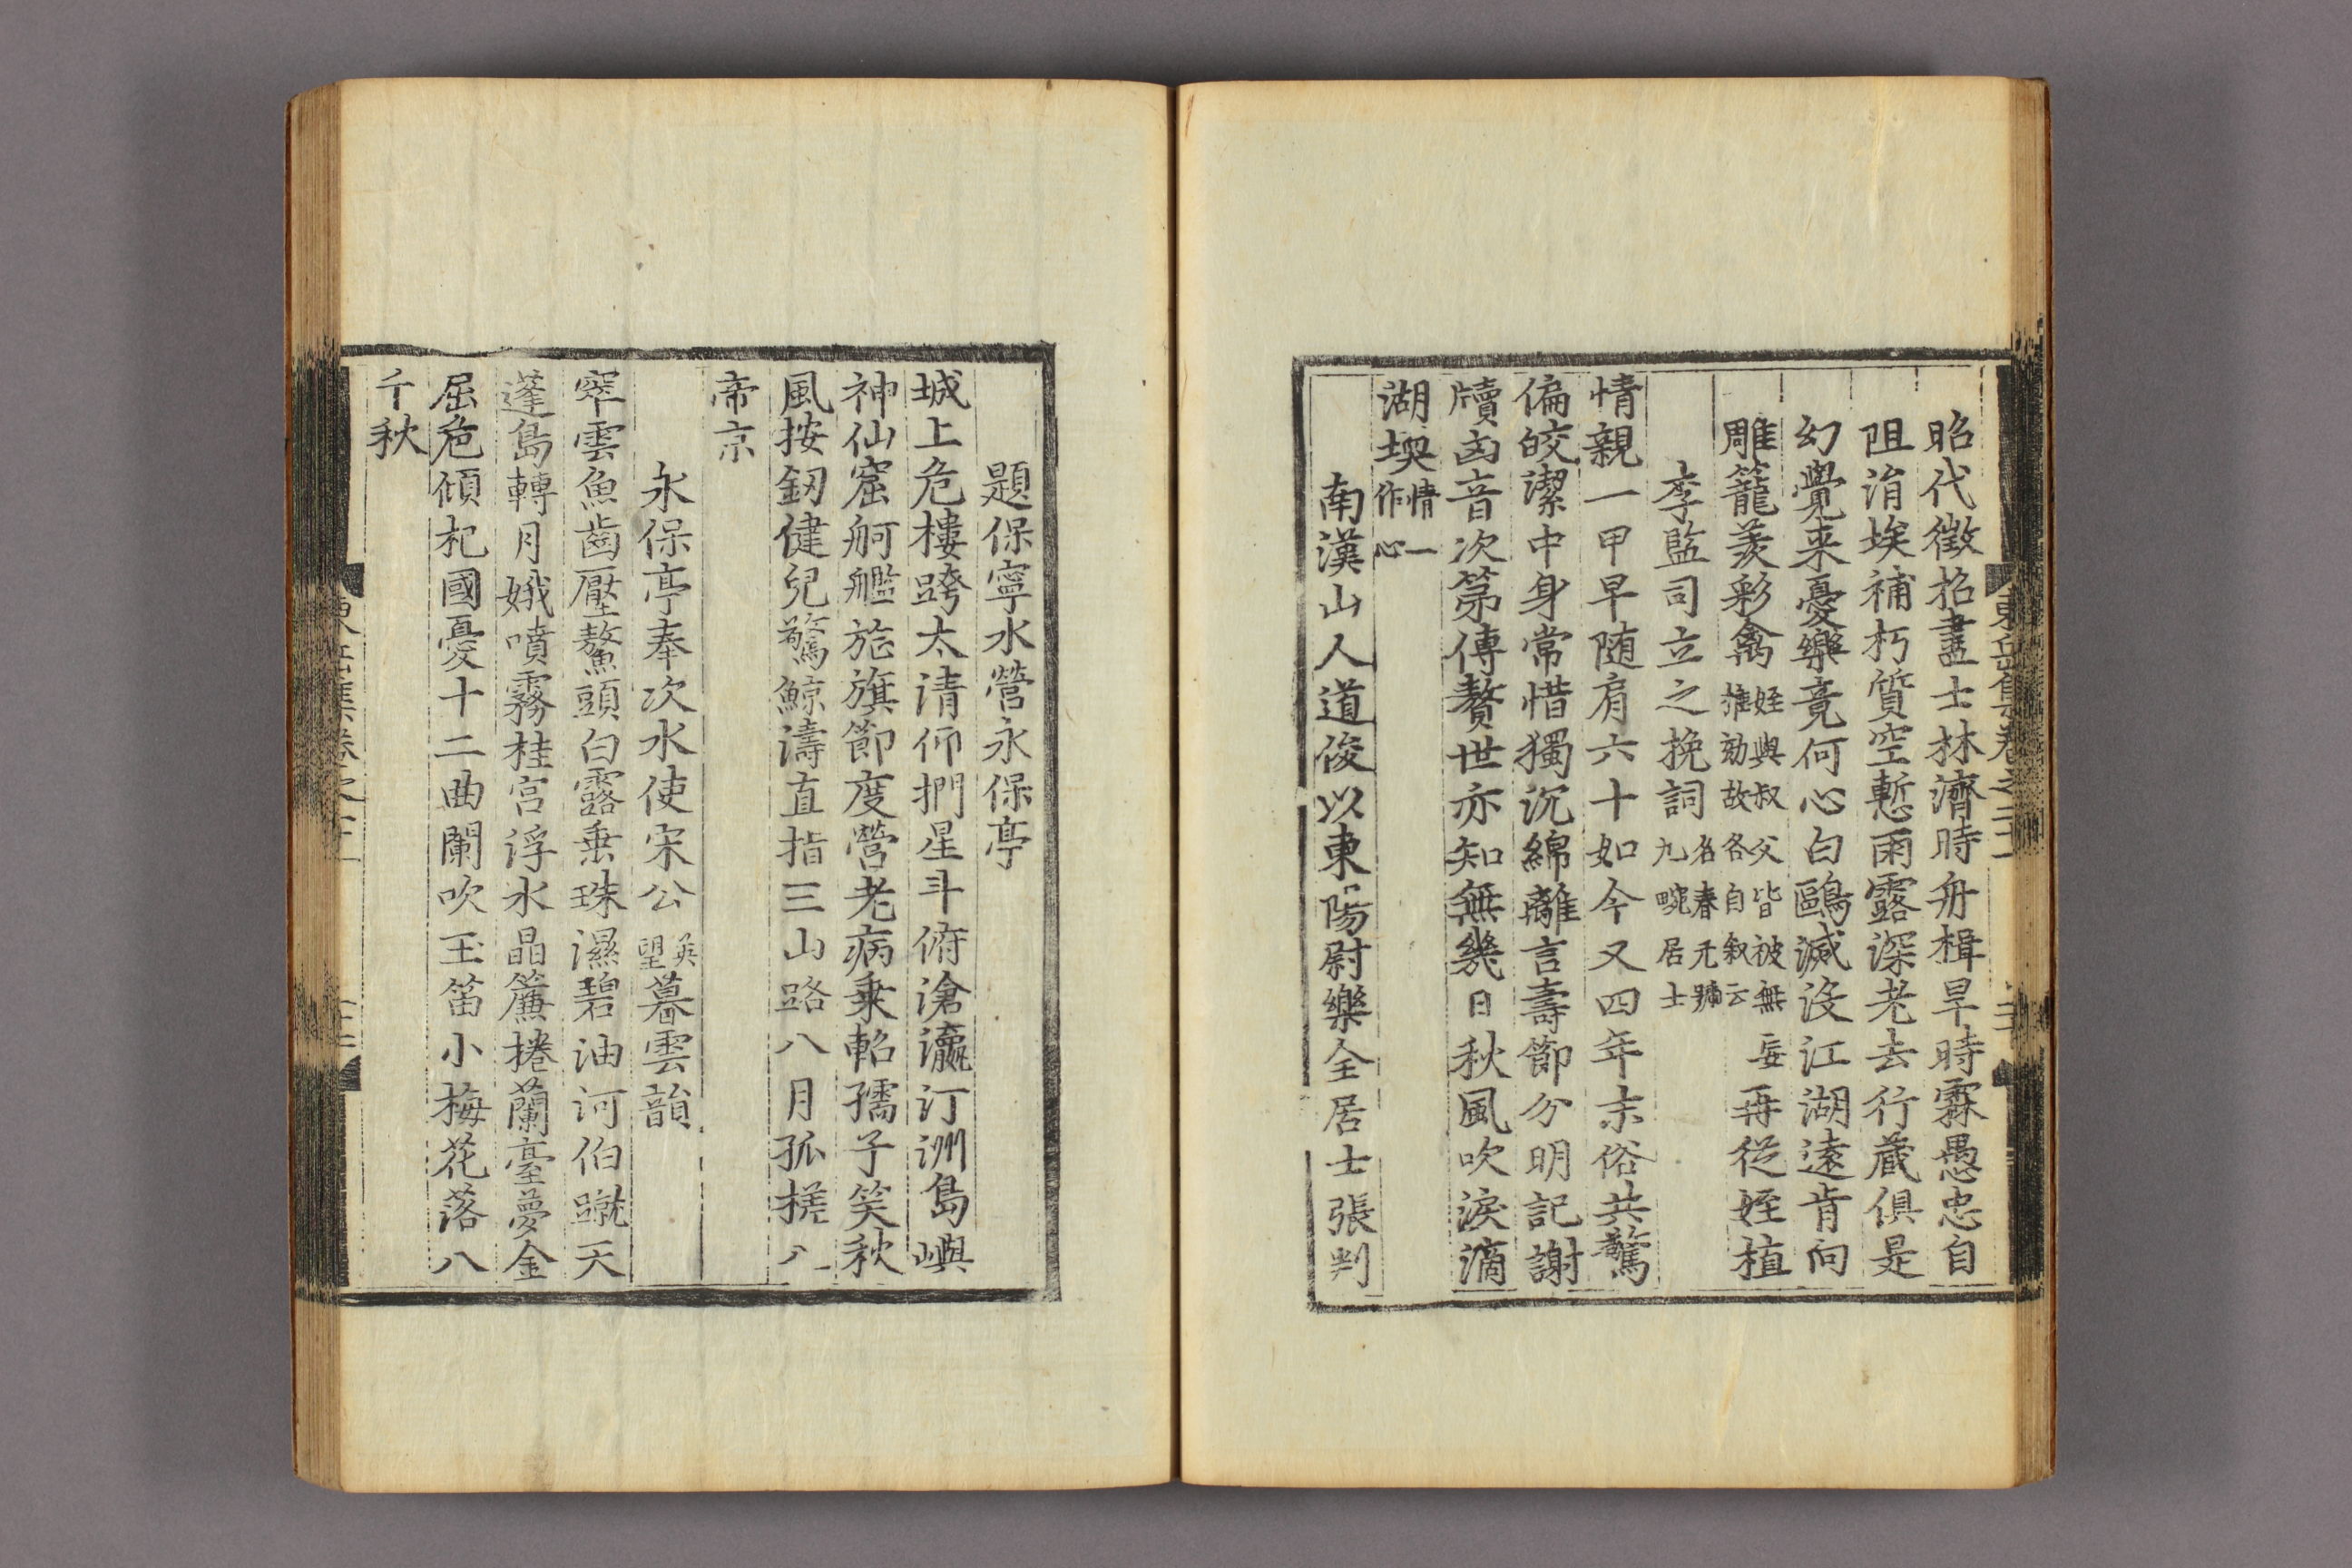 昭代徵招盡士林濟時舟楫旱時霖愚忠自
阻涓埃補朽質空慙雨露深老去行藏俱是
幻覺来憂樂竟何心白鷗滅沒江湖遠肯向
雕籠羨彩禽 姪與叔父皆被無妄 推劾故各自叙云 再從姪植
李監司立之挽詞 名春元號 九畹居士
情親一甲早随肩六十如今又四年末俗共驚
偏皎潔中身常惜獨沉綿離言壽節分明記謝
牘凶音次第傳贅世亦知無幾日秋風吹淚滴
湖堧 情一 作心
南漢山人道俊以東陽尉樂全居士張判
東岳集卷之二十一
題保寧水營永保亭
城上危樓跨太清仰捫星斗俯滄瀛汀洲島嶼
神仙窟舸艦旌旗節度營老病乗軺孺子笑秋
風按釼健兒驚鯨濤直指三山路八月孤槎入
帝京
永保亭奉次水使宋公 英 望 暮雲韻
窂雲魚齒壓鰲頭白露垂珠濕碧油河伯蹴天
蓬島轉月娥噴霧桂宮浮水晶簾捲蘭臺夢金
屈危傾杞國憂十二曲闌吹玉笛小梅花落八
千秋